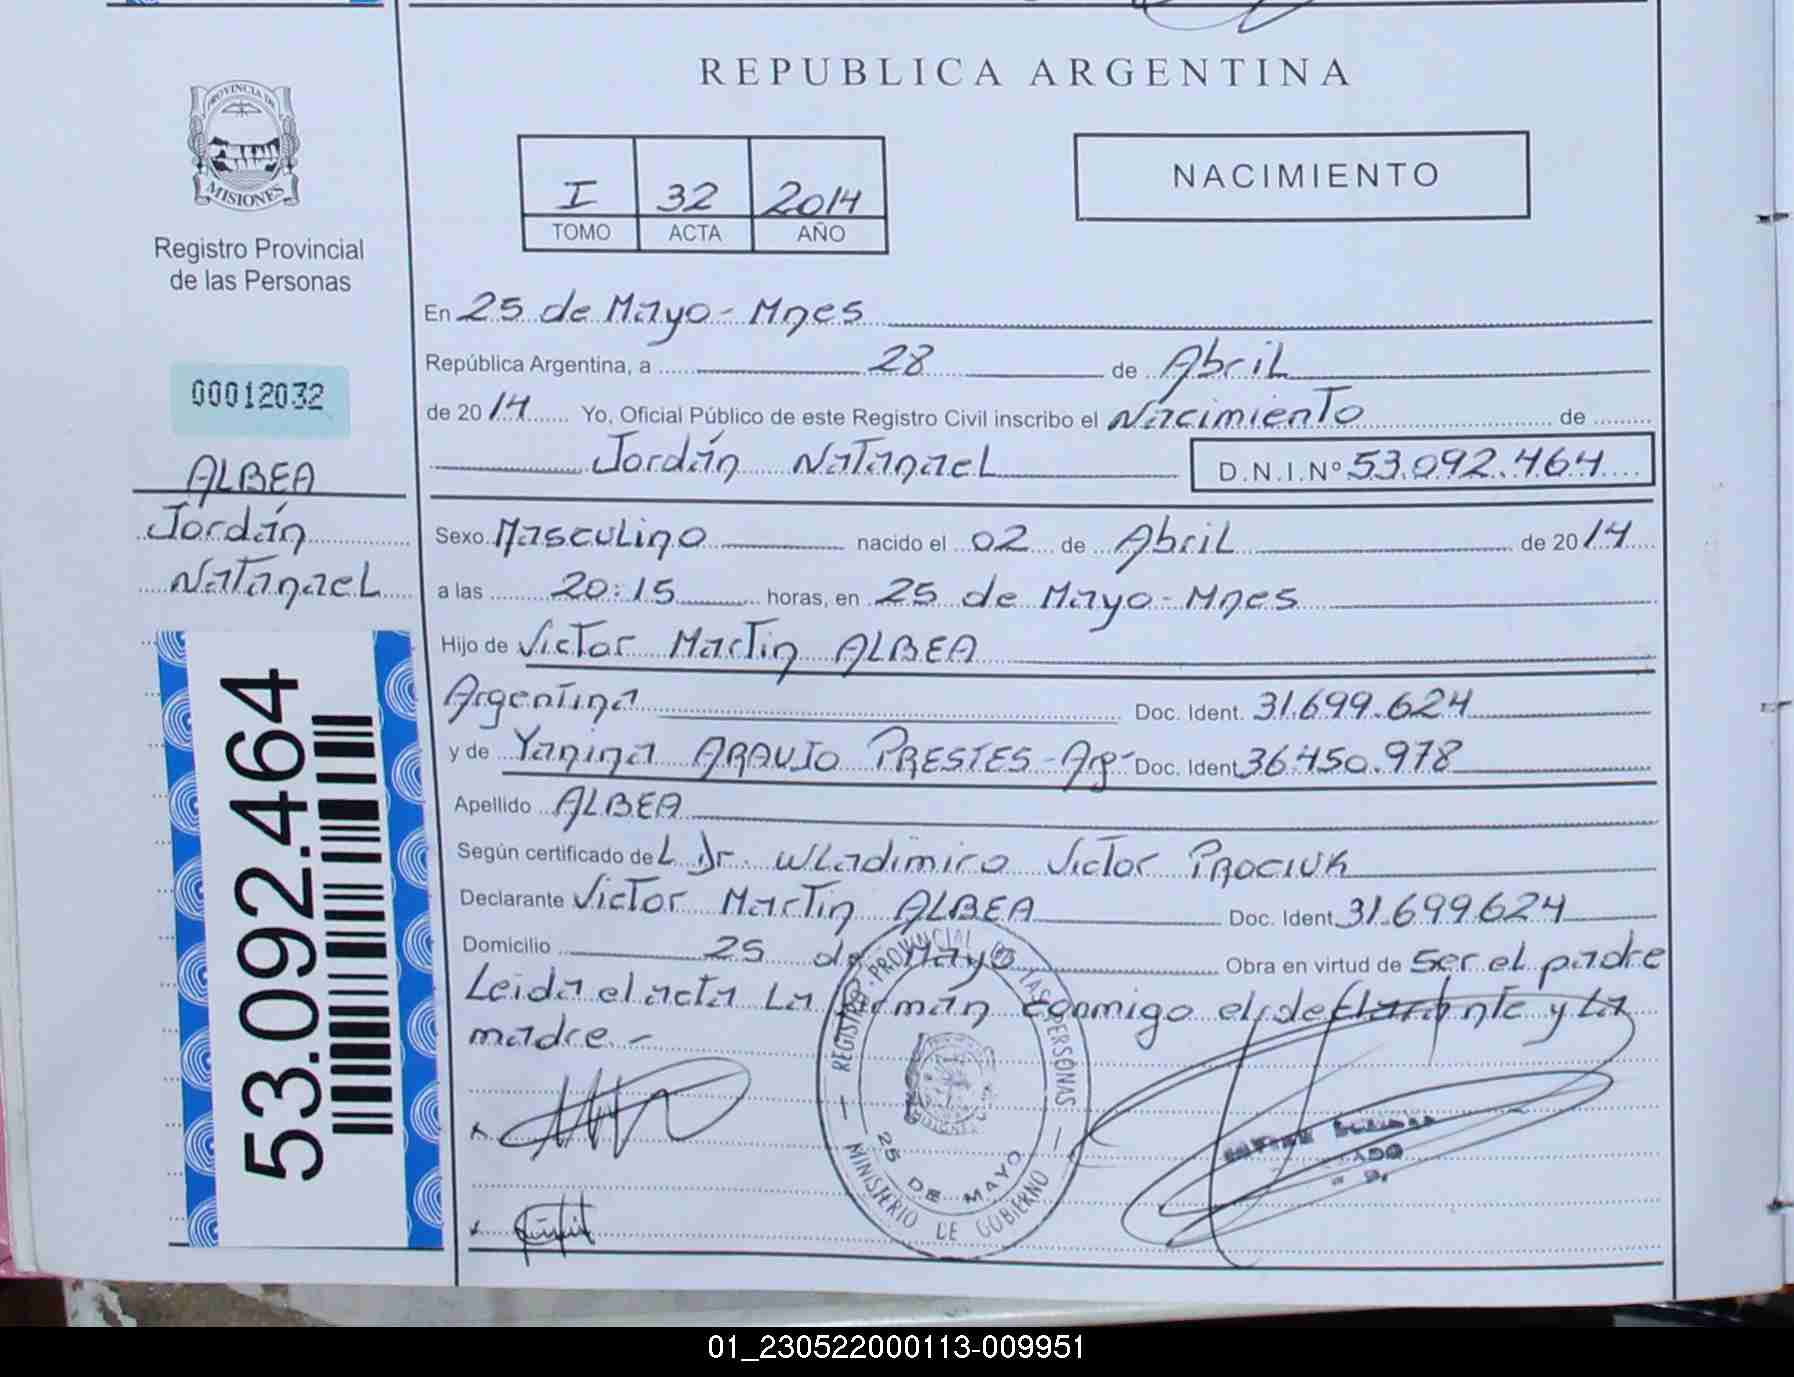 REPUBLICA ARGENTINA
PROVINCIA DE
MISIONES
Registro Provincial
de las Personas
I 32 2014
TOMO ACTA AÑO
NACIMIENTO
00012032
ALBEA
Jordán
Natanael
53.092.464
En 25 de Mayo - Mnes
República Argentina, a 28 de Abril
de 2014 Yo, Oficial Público de este Registro Civil inscribo el Nacimiento de
Jordán Natanael D.N.I.Nº 53.092.464
Sexo Masculino nacido el 02 de Abril de 2014
a las 20:15 horas, en 25 de Mayo - Mnes
Hijo de Victor Martin ALBEA
Argentina Doc. Ident. 31.699.624
y de Yanina ARAUJO PRESTES - Doc. Ident 36.450.978
Apellido ALBEA
Según certificado del Dr. Wladimiro Victor PROCIUK
Declarante Victor Martin ALBEA Doc. Ident. 31.699624
Domicilio 25 de Mayo Obra en virtud de Ser el padre
Leida el acta La firmán conmigo el declarante y La
madre.-
REGISTRO PROVINCIAL DE LAS PERSONAS
25 DE MAYO
MINISTERIO DE GOBIERNO
01_230522000113-009951